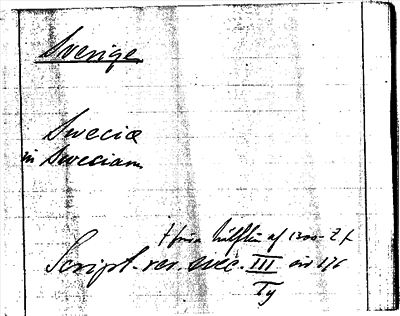 Sverige
Swecia
in Sweciam
hälften af 1200-t
Script. rer. svec. III
Ty